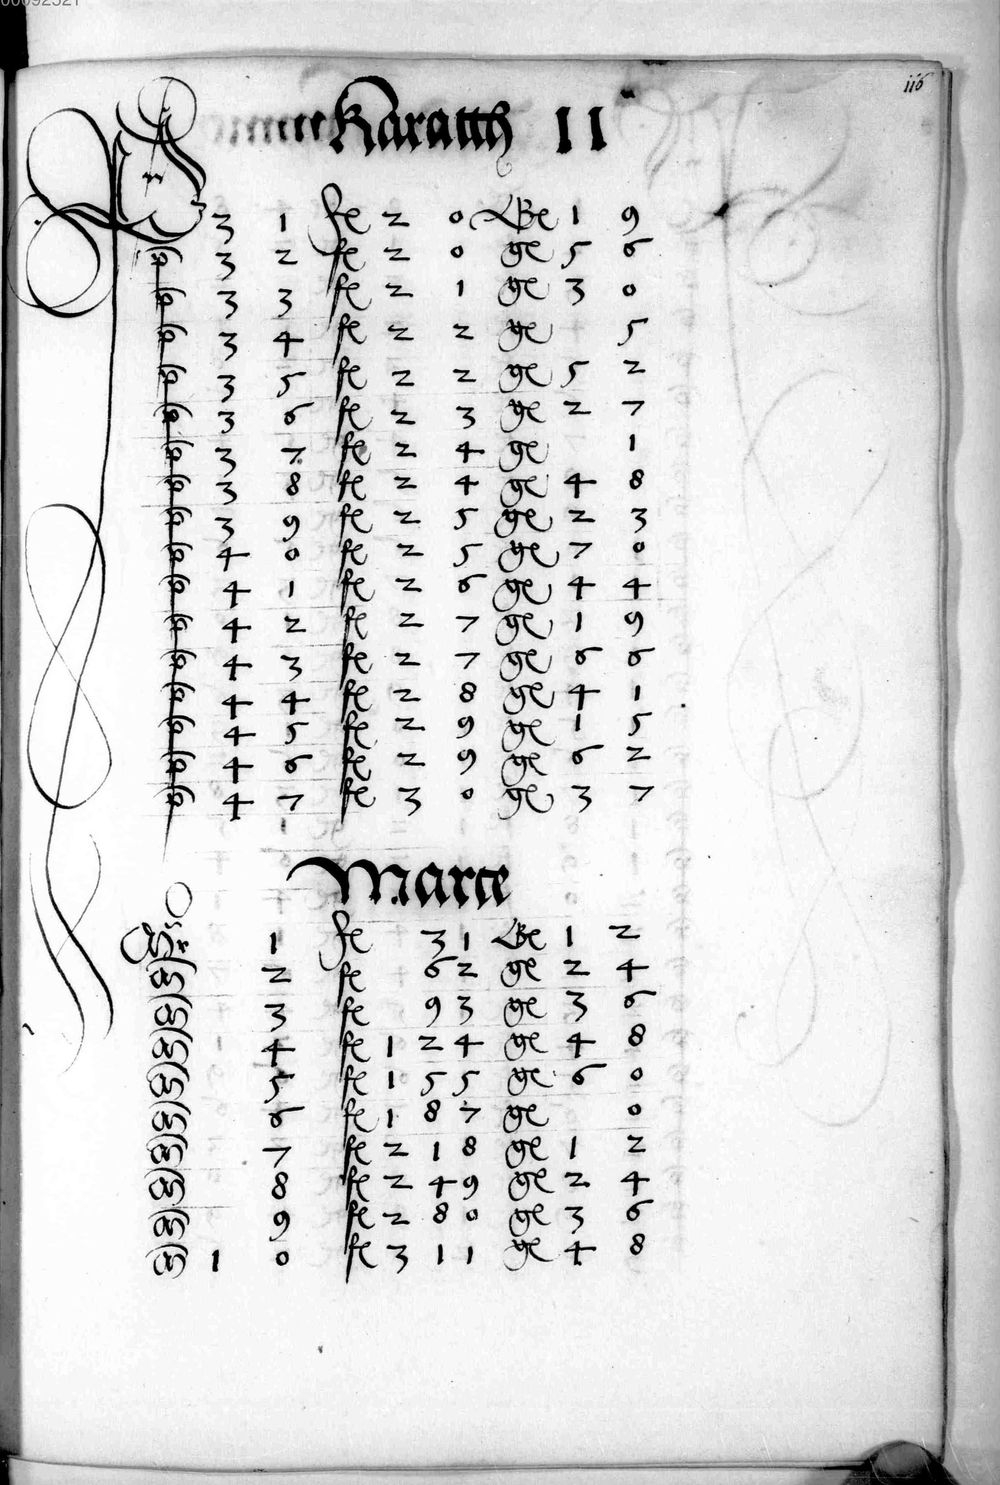 00092521
116
Karatth 11
3 1 fl 2 0 Ge 1 9
3 2 fl 2 0 ge 5 6
3 3 fl 2 1 ge 3 0
3 4 fl 2 2 ge 5
3 5 fl 2 2 ge 5 2
3 6 fl 2 3 ge 2 7
3 7 fl 2 4 ge 1
3 8 fl 2 4 ge 4 8
3 9 fl 2 5 ge 2 3
4 0 fl 2 5 ge 7 0
4 1 fl 2 6 ge 4 4
4 2 fl 2 7 ge 1 9
4 3 fl 2 7 ge 6 6
4 4 fl 2 8 ge 4 1
4 5 fl 2 9 ge 1 5
4 6 fl 2 9 ge 6 2
4 7 fl 3 0 ge 3 7
Marce
1 fl 3 1 Ge 1 2
2 fl 6 2 ge 2 4
3 fl 9 3 ge 3 6
4 fl 1 2 4 ge 4 8
5 fl 1 5 5 ge 6 0
6 fl 1 8 7 ge 0
7 fl 2 1 8 ge 1 2
8 fl 2 4 9 ge 2 4
9 fl 2 8 0 ge 3 6
1 0 fl 3 1 1 ge 4 8